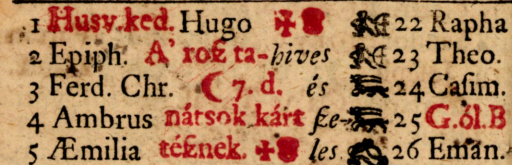 1 Husv. ked. Hugo 22 Rapha
2 Epiph. A' roſz ta- hives 23 Theo.
3 Ferd. Chr. 7. d. és 24 Caſim.
4 Ambrus nátsok kárt ſze- 25 G. ól. B
5 Æmilia téſznek. les. 26 Eman.